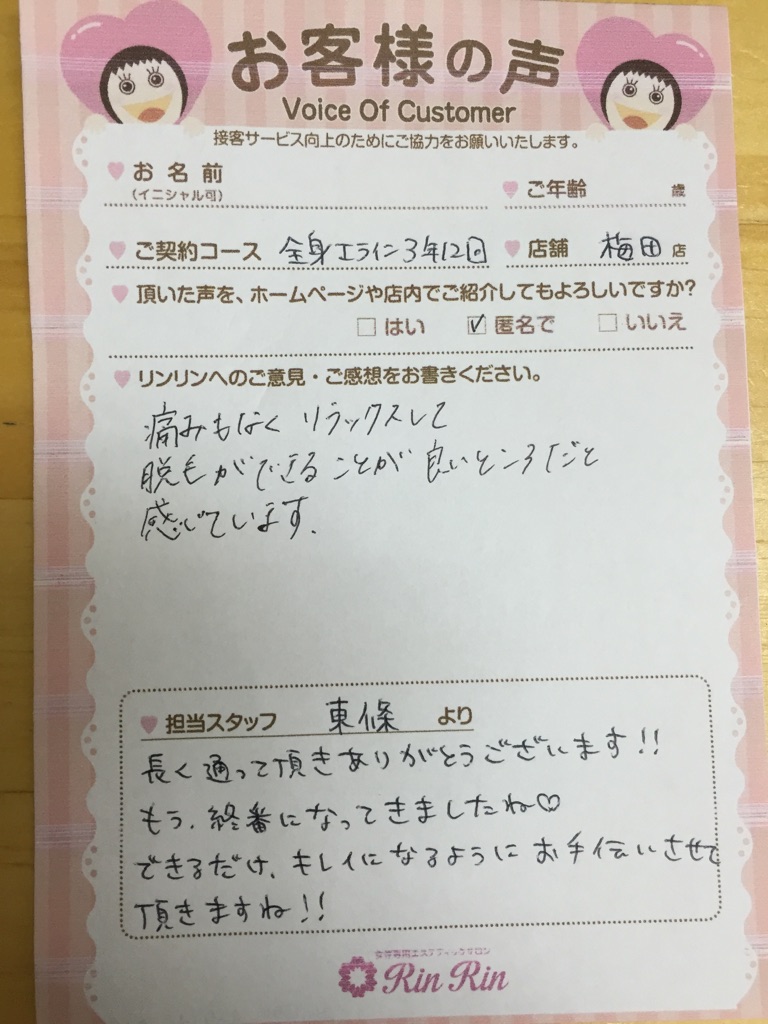 お客様の声
Voice Of Customer
接客サービス向上のためにご協力をお願いいたします。
お名前
(イニシャル可)
ご年齢 歳
ご契約コース 全身エライン3年12回
店舗 梅田 店
頂いた声を、ホームページや店内でご紹介してもよろしいですか?
□ はい ☑ 匿名で □ いいえ
リンリンへのご意見・ご感想をお書きください。
痛みもなく リラックスして
脱毛ができることが 良いところだと
感じています.
担当スタッフ 東條 より
長く通って頂きありがとうございます!!
もう、終番になってきましたね♡
できるだけ、キレイになるようにお手伝いさせて
頂きますね!!
女性専用エステティックサロン
Rin Rin